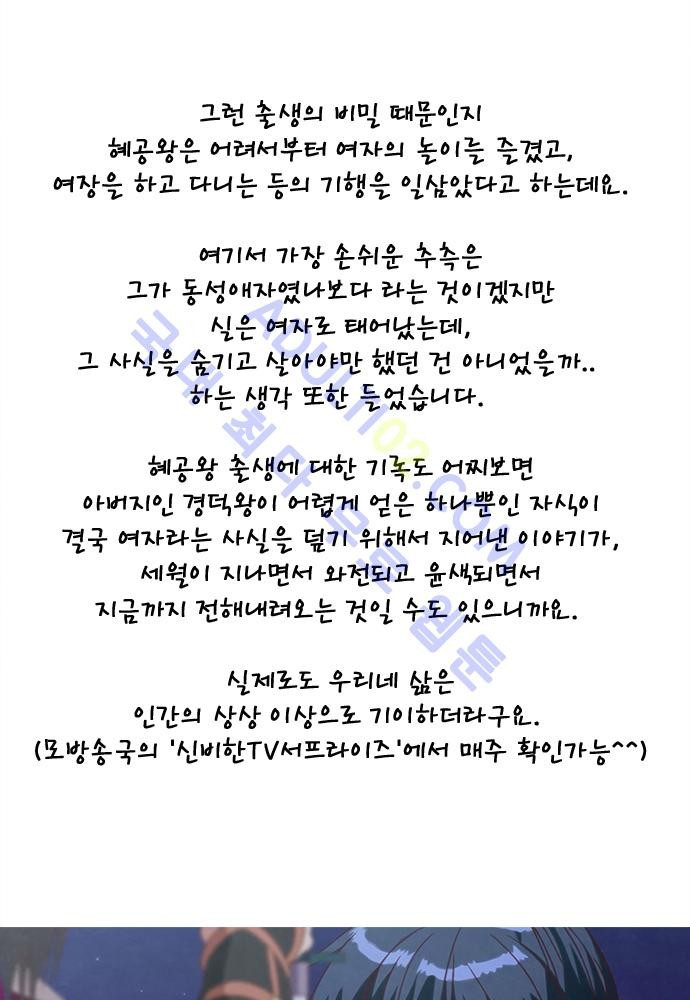 그런 출생의 비밀 때문인지
혜공왕은 어려서부터 여자의 놀이를 즐겼고,
여장을 하고 다니는 등의 기행을 일삼았다고 하는데요.
여기서 가장 손쉬운 추측은
그가 동성애자였나보다 라는 것이겠지만
실은 여자로 태어났는데,
그 사실을 숨기고 살아야만 했던 건 아니었을까..
하는 생각 또한 들었습니다.
혜공왕 출생에 대한 기록도 어찌보면
아버지인 경덕왕이 어렵게 얻은 하나뿐인 자식이
결국 여자라는 사실을 덮기 위해서 지어낸 이야기가,
세월이 지나면서 와전되고 윤색되면서
지금까지 전해내려오는 것일 수도 있으니까요.
실제로도 우리네 삶은
인간의 상상 이상으로 기이하더라구요.
(모방송국의 '신비한TV서프라이즈'에서 매주 확인가능^^)
ADULT102.COM
국내 최다 무료 웹툰